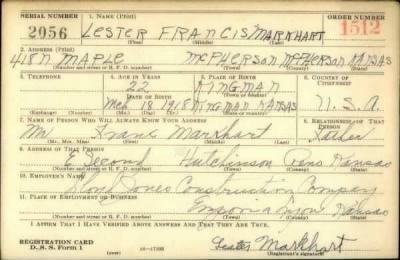 SERIAL NUMBER 1. NAME (Print) ORDER NUMBER
2056 LESTER FRANCIS MARKHART 1512
(First) (Middle) (Last)
2. ADDRESS (Print)
418 N MAPLE McPHERSON McPHERSON KANSAS
(Number and street or R. F. D. number) (Town) (County) (State)
3. TELEPHONE 4. AGE IN YEARS 5. PLACE OF BIRTH 6. COUNTRY OF CITIZENSHIP
22 KINGMAN
DATE OF BIRTH (Town or county)
18 1918 KINGMAN KANSAS U. S. A.
(Exchange) (Number) (Mo.) (Day) (Yr.) (State or country)
7. NAME OF PERSON WHO WILL ALWAYS KNOW YOUR ADDRESS 8. RELATIONSHIP OF THAT PERSON
Mr Frank Markhart Father
(Mr., Mrs., Miss) (First) (Middle) (Last)
9. ADDRESS OF THAT PERSON
E Second Hutchinson Reno Kansas
(Number and street or R. F. D. number) (Town) (County) (State)
10. EMPLOYER'S NAME
Jones Construction Company
11. PLACE OF EMPLOYMENT OR BUSINESS
Emporia Lyon Kansas
(Number and street or R. F. D. number) (Town) (County) (State)
I AFFIRM THAT I HAVE VERIFIED ABOVE ANSWERS AND THAT THEY ARE TRUE.
REGISTRATION CARD
D. S. S. Form 1 (over) Lester Markhart
(Registrant's signature)